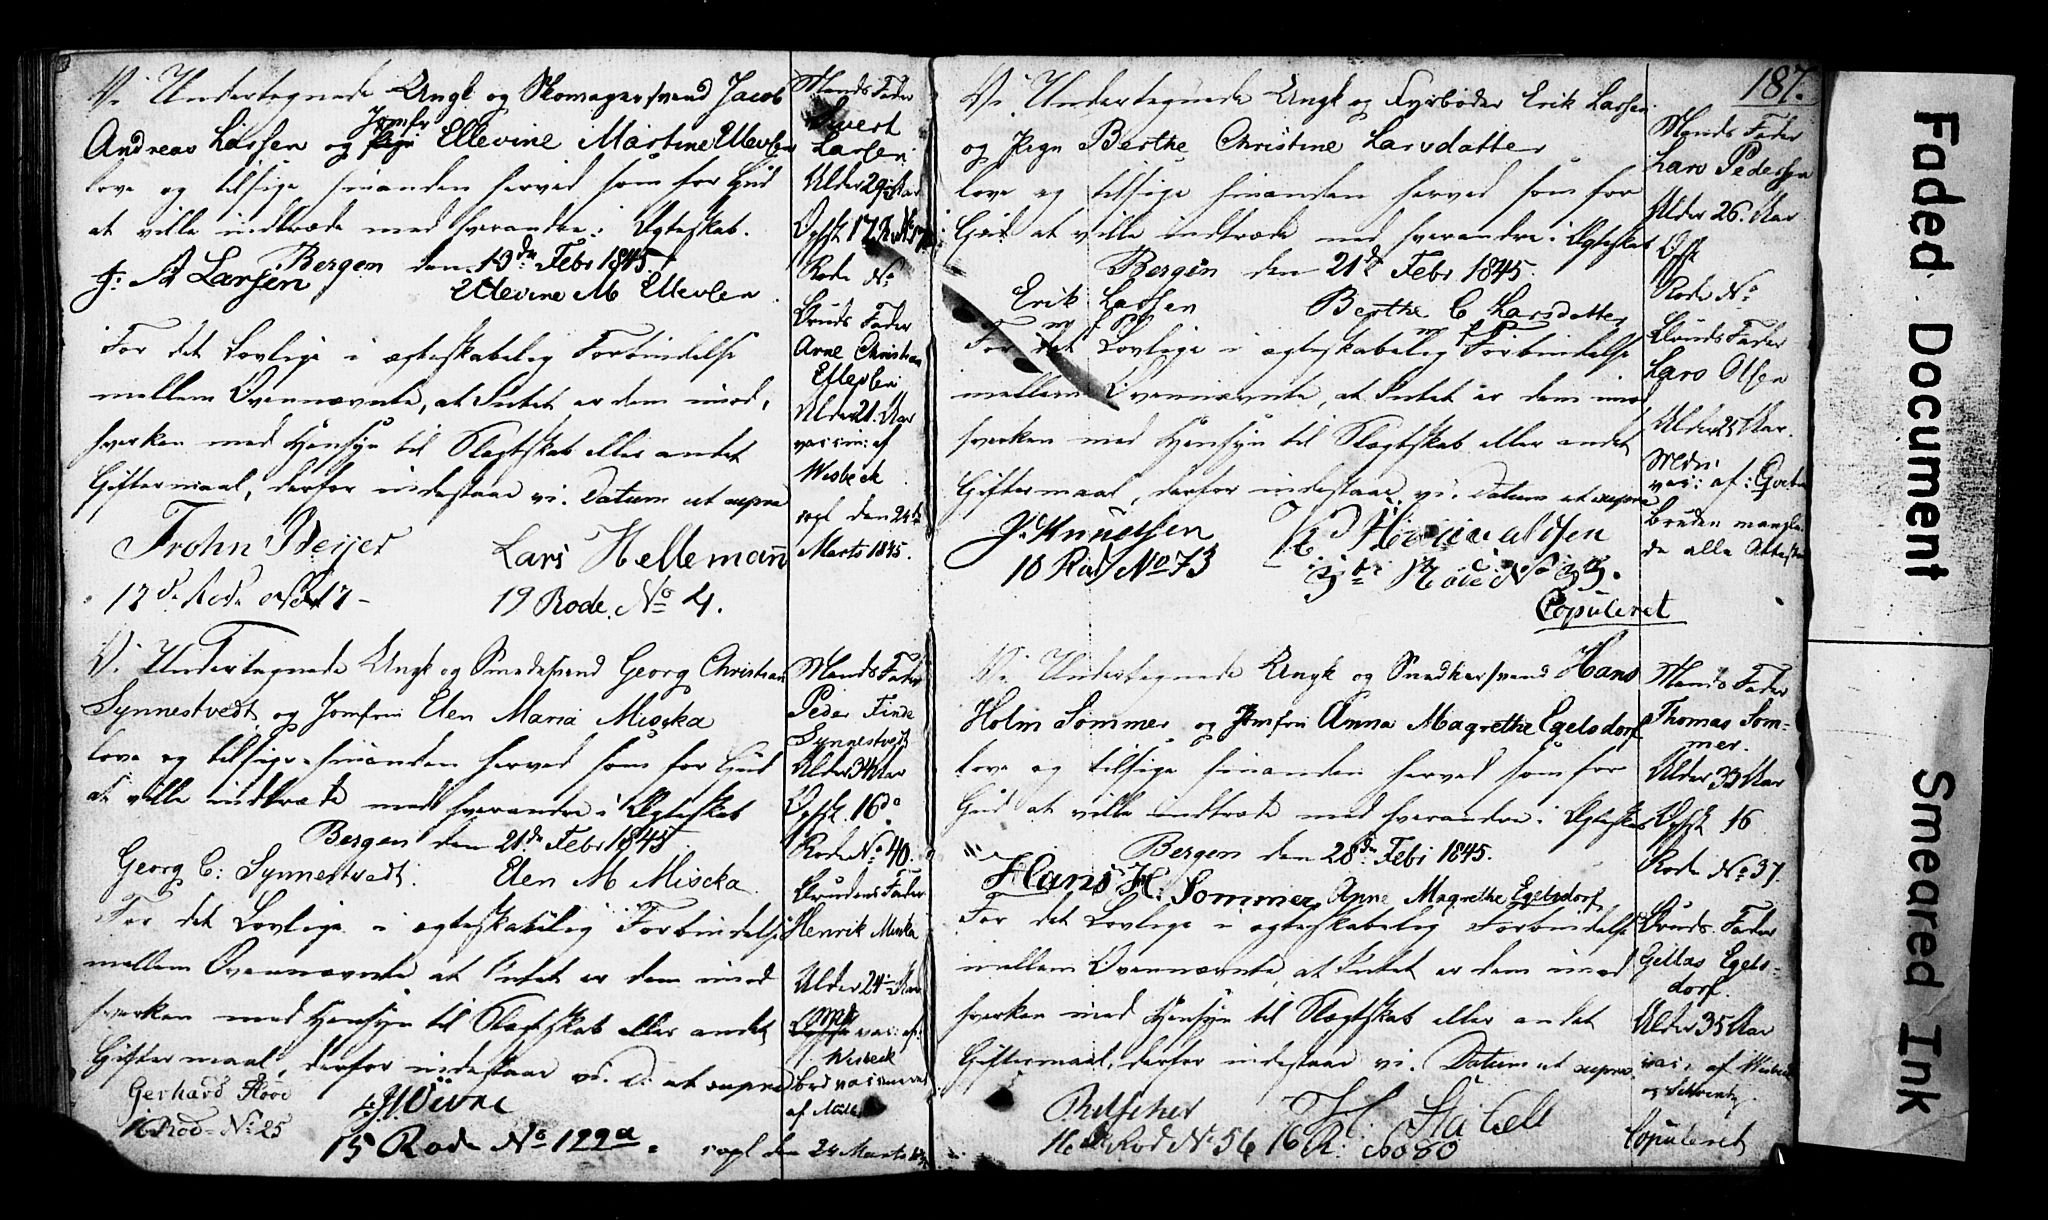 Vi Undertegnede Ungk og Skomagersvend Jacob
Andreas Larsen og Jomfr Ellevine Martine Ellevsen
love og tilsige hinanden herved som for Gud
at ville indtræde med hverandre i Ægteskab.
Bergen den 19de Febr 1845
J: A Larsen Ellevine M Ellevsen
For det Lovlige i ægteskabelig Forbindelse
mellem Ovennævnte, at Intet er dem imod,
hverken med Hensyn til Slægtskab eller andet
Giftermaal, derfor indestaae vi. Datum ut supra
Frohn Beijer Lars Helleman
17de Rode No 17 19 Rode No 4.
Mands Fader
Sivert
Larsen
Alder 29 Aar
Opfsk 17 R No
Rode No
Bruds Fader
Arne Christian
Ellevsen
Alder 21 Aar
vaccin: af
Wisbeck
copl den 24de
Marts 1845.
Vi Undertegnede Ungk og Smedesvend Georg Christian
Synnestvedt og Jomfru Elen Maria Miscka
love og tilsige hinanden herved som for Gud
at ville indtræde med hverandre i Ægteskab
Bergen den 21de Febr 1845
Georg C: Synnestvedt. Elen M Miscka
For det Lovlige i ægteskabelig Forbindelse
mellem Ovennævnte at Intet er dem imod
hverken med Hensyn til Slægtskab eller andet
Giftermaal, derfor indestaae vi. D: ut supra
Gerhard
16 Rod- No 25
15 Rode No 122a. copl den 24 Marts
Mands Fader
Peder Finde
Synnestvedt
Alder 34 Aar
Opfsk. 16de
Rode No 40.
Brudens Fader
Henrik Miscka
Alder 24 Aar
vac: af:
Wisbeck
Brd vaccineret
af
187.
Vi Undertegnede Ungk og Fyrbøder Erik Larsen
og Pige Berthe Christine Larsdatter
love og tilsige hinanden herved som for
Gud at ville indtræde med hverandre i Ægteskab
Bergen den 21de Febr 1845.
Erik Larsen Berthe C Larsdatter
m f P m f P
For det Lovlige i ægteskabelig Forbindelse
mellem Ovennævnte, at Intet er dem imod
hverken med Hensyn til Slægtskab eller andet
Giftermaal, derfor indestaae vi. Datum ut supra
Knudtsen
10 Rode No 73
Rode No 33.
Copuleret
Mands Fader
Lars Pedersen
Alder 26 Aar
Opfsk
Rode No
Bruds Fader
Lars Olsen
Alder 25 Aar.
vac: af:
Bruden mangle-
de alle Attester
Vi Undertegnede Ungk og Snedkersvend Hans
Holm Sommer og Jomfru Anna Magrethe Egelsdorf
love og tilsige hinanden herved som for
Gud at ville indtræde med hverandre i Ægteskab
Bergen den 28de Febr 1845.
Hans H. Sommer Anne Magrethe Egelsdorf
For det Lovlige i ægteskabelig Forbindelse
mellem Ovennævnte, at Intet er dem imod
hverken med Hensyn til Slægtskab eller andet
Giftermaal, derfor indestaae vi. Datum ut supra
H: Stabell
16 Rod No 56 16 R. No 80
Mands Fader
Thomas Som-
mer.
Alder 33 Aar
Opfsk 16
Rode No 37.
Bruds Fader
Gillas Egels-
dorf.
Alder 35 Aar
vac: af Wisbeck
Copuleret
Faded Document
Smeared Ink